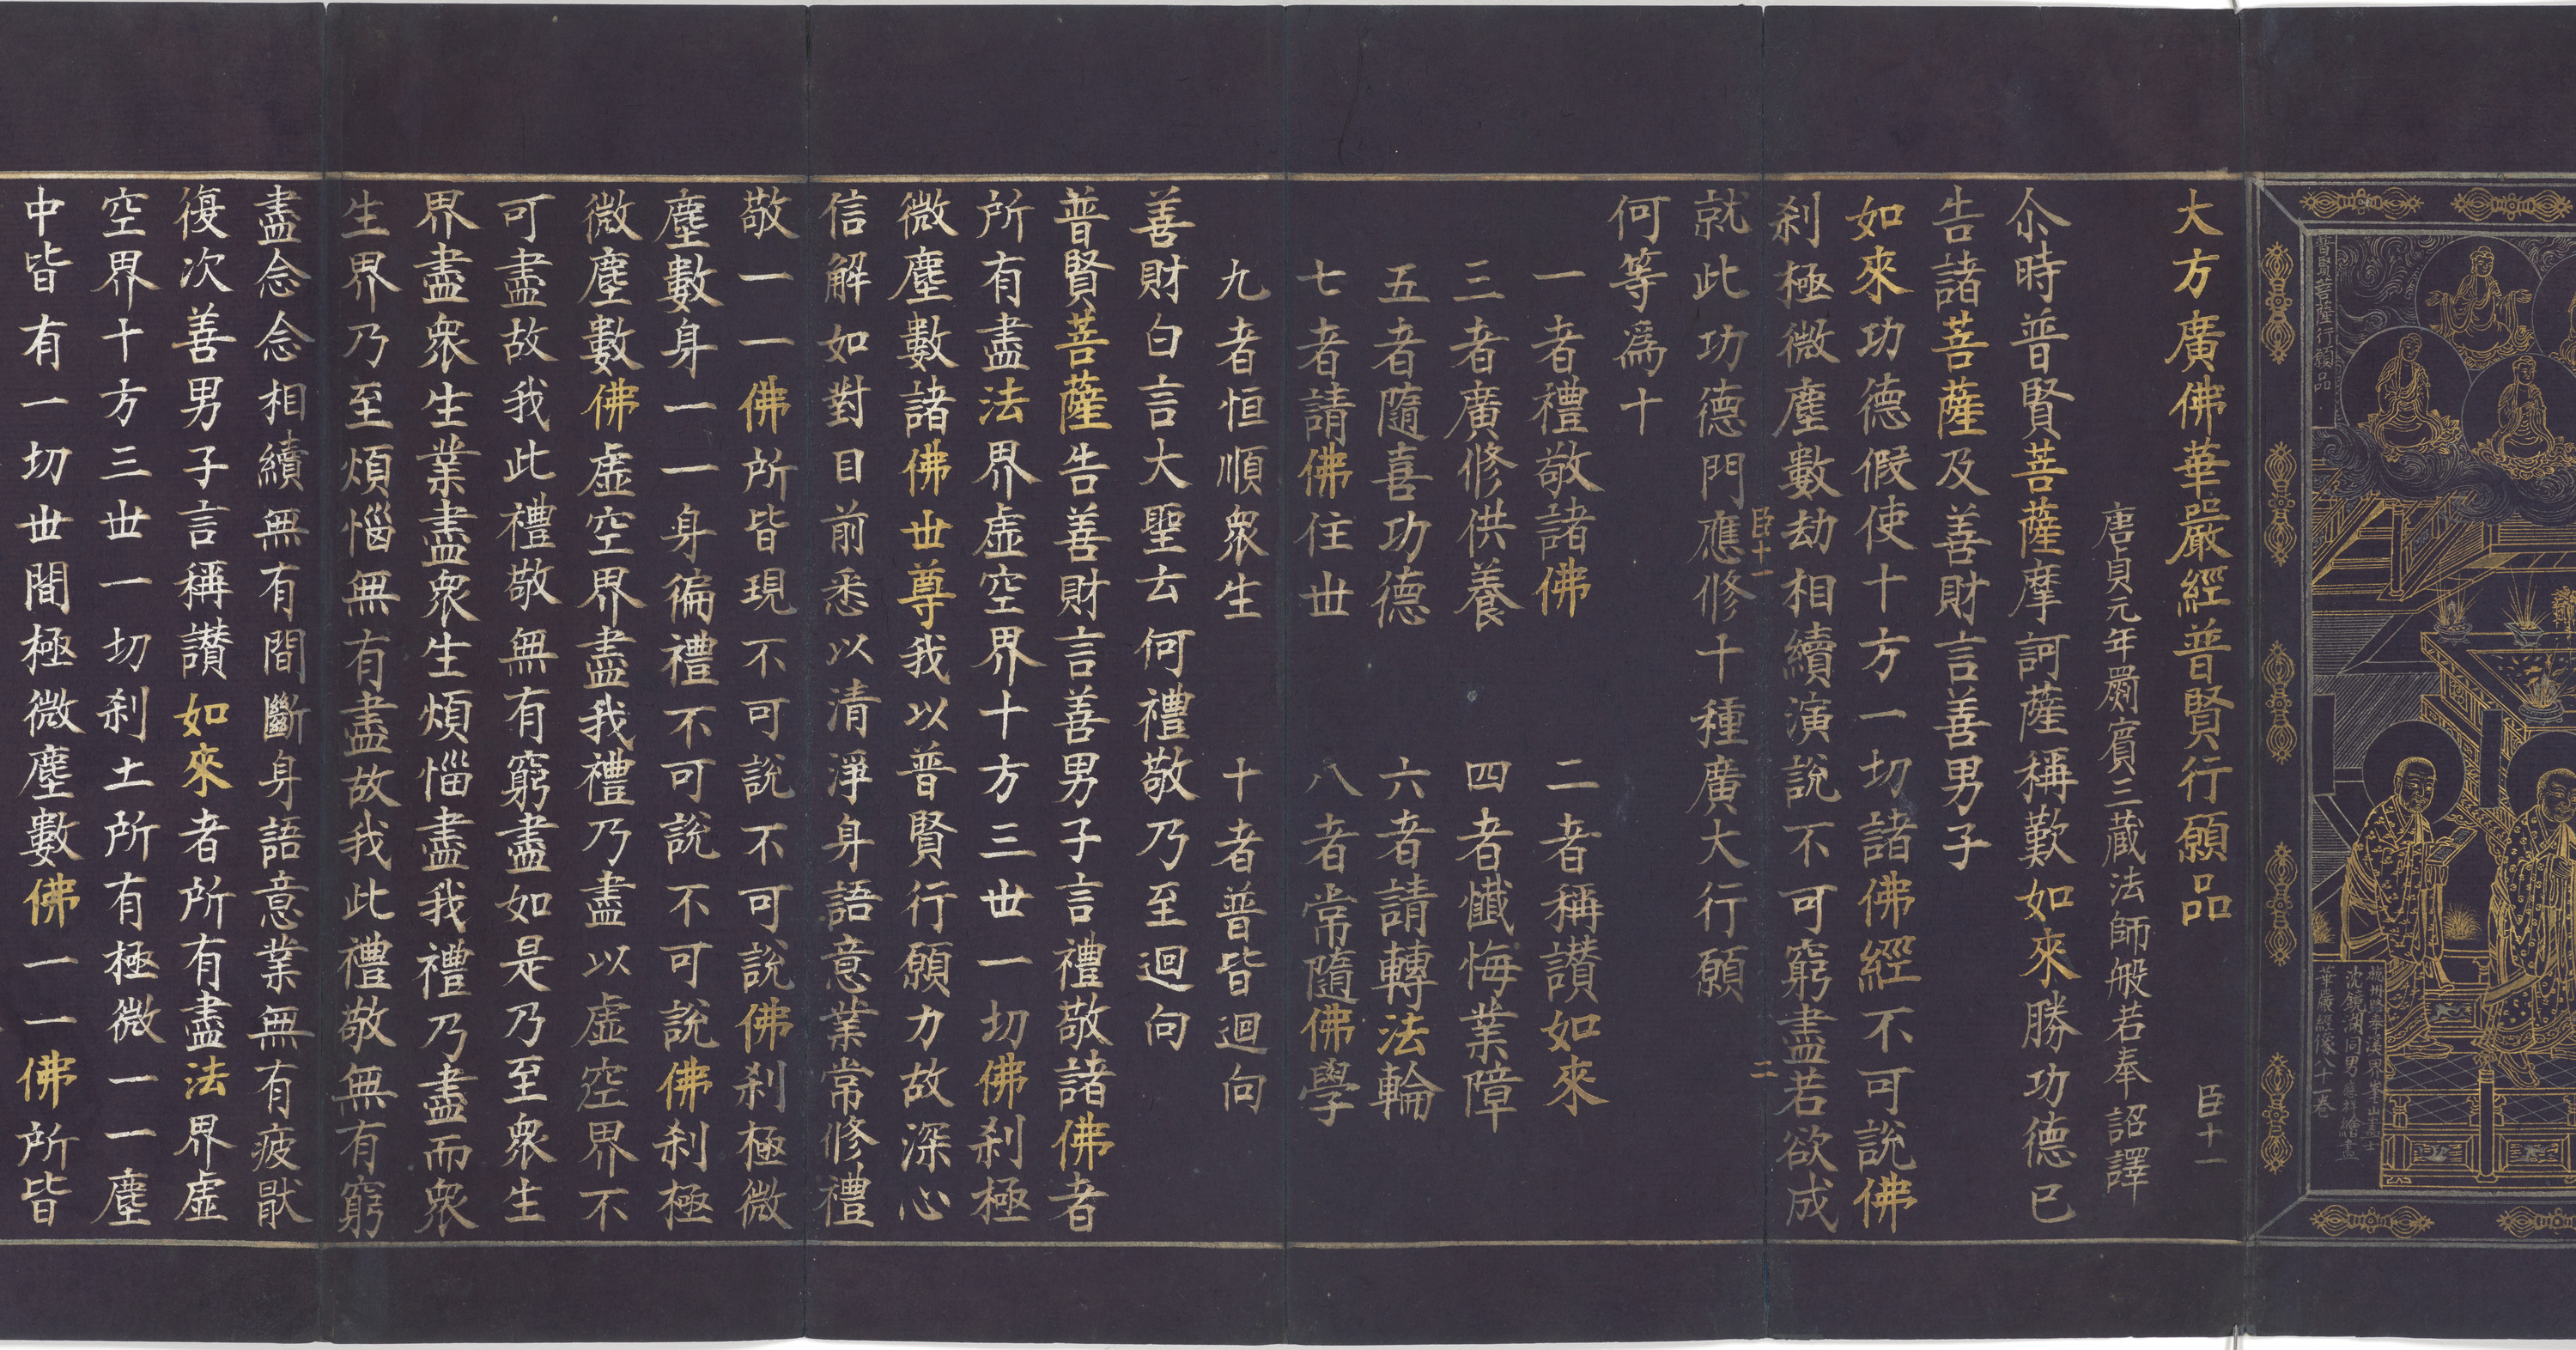 普賢菩薩行願品
華嚴經像八十一卷
大方廣佛華嚴經普賢行願品 臣十一
唐貞元年罽賓三藏法師般若奉詔譯
尒時普賢菩薩摩訶薩稱歎如來勝功德已
告諸菩薩及善財言善男子
如來功德假使十方一切諸佛經不可說佛
刹極微塵數劫相續演說不可窮盡若欲成
臣十一 二
就此功德門應修十種廣大行願
何等爲十
一者禮敬諸佛 二者稱讃如來
三者廣修供養 四者懺悔業障
五者隨喜功德 六者請轉法輪
七者請佛住世 八者常隨佛學
九者恒順衆生 十者普皆迴向
善財白言大聖云何禮敬乃至迴向
普賢菩薩告善財言善男子言禮敬諸佛者
所有盡法界虛空界十方三世一切佛刹極
微塵數諸佛世尊我以普賢行願力故深心
信解如對目前悉以清淨身語意業常修禮
敬一一佛所皆現不可說不可說佛刹極微
塵數身一一身徧禮不可說不可說佛刹極
微塵數佛虛空界盡我禮乃盡以虛空界不
可盡故我此禮敬無有窮盡如是乃至衆生
界盡衆生業盡衆生煩惱盡我禮乃盡而衆
生界乃至煩惱無有盡故我此禮敬無有窮
盡念念相續無有間斷身語意業無有疲猒
復次善男子言稱讃如來者所有盡法界虛
空界十方三世一切刹土所有極微一一塵
中皆有一切世間極微塵數佛一一佛所皆